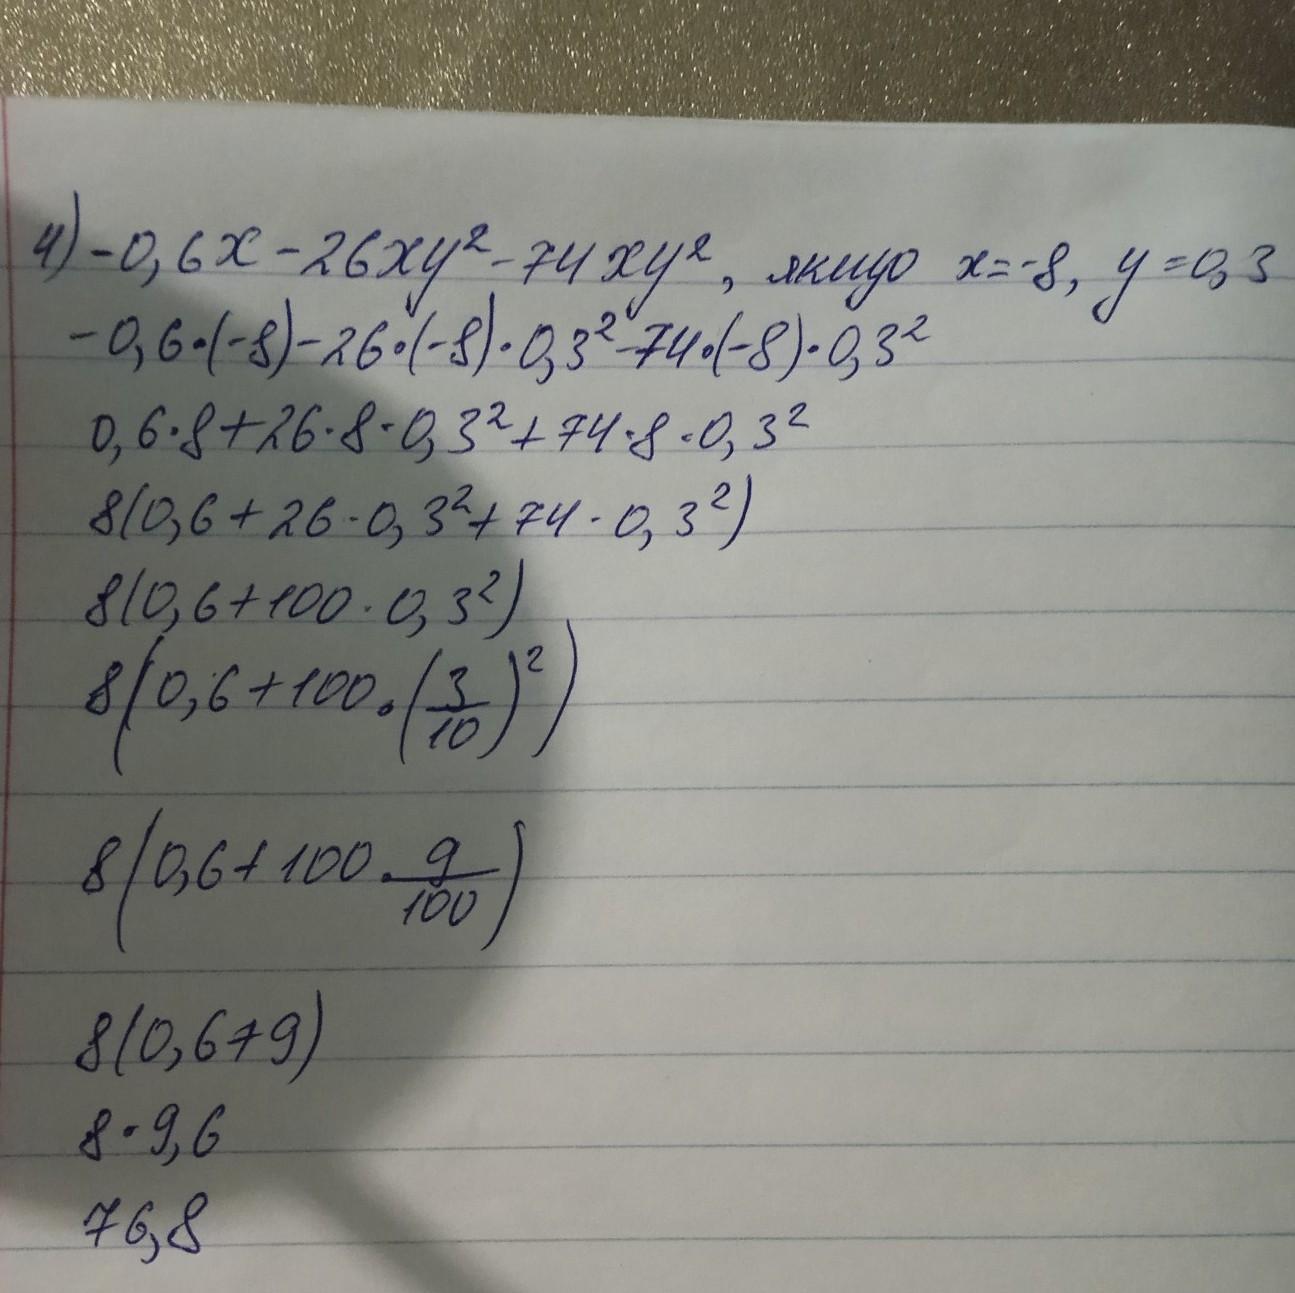 4) -0,6x - 26xy² - 74xy², якщо x=-8, y=0,3
-0,6·(-8)-26·(-8)·0,3²-74·(-8)·0,3²
0,6·8+26·8·0,3²+74·8·0,3²
8(0,6+26·0,3²+74·0,3²)
8(0,6+100·0,3²)
8(0,6+100·(3/10)²)
8(0,6+100·9/100)
8(0,6+9)
8·9,6
76,8